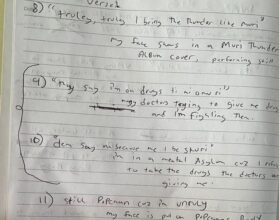 Verses
8) "truley, truley I bring the thunder like muri"
my face saws in a Muri Thunder
Album cover, performing still
9) "They say i'm on drugs ti ni onuri"
my doctors trying to give me drug
and I'm fighting them.
10) "dem say me secure me i be shuri"
i'm in a mental Asylum cuz I refuse
to take the drugs the doctors are
giving me.
11) still PoPcaan cuz in unruly
my face is put on PoPcaan Body